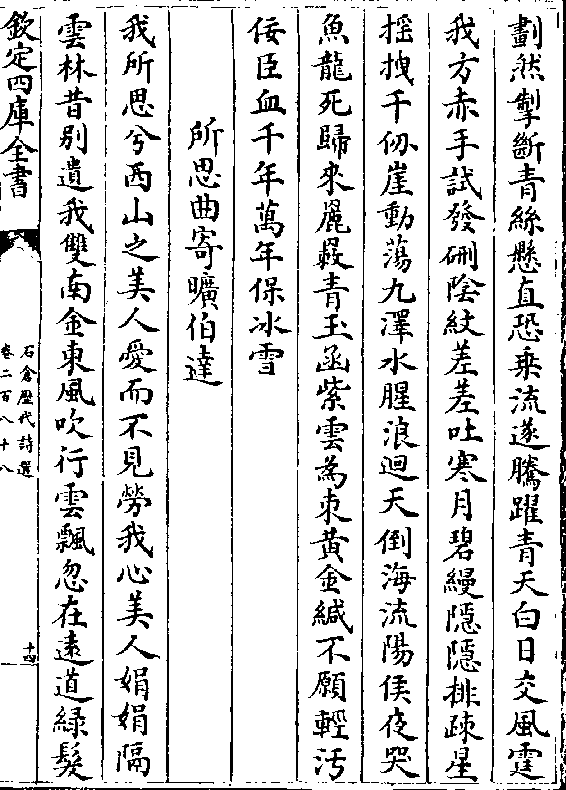 劃然掣斷青絲懸直恐乗流遂騰躍青天白日交風霆
我方赤手試發硎陰紋差差吐寒月碧縵隱隱排疎星
揺拽千仞崖動蕩九澤水腥浪迴天倒海流陽侯夜哭
魚龍死歸來麗𣪠青玉函紫雲為朿黄金緘不願輕汚
佞臣血千年萬年保冰雪
所思曲寄曠伯逹
我所思兮西山之美人愛而不見勞我心美人娟娟隔
雲林昔别遺我雙南金東風吹行雲飄忽在逺道緑髮
欽定四庫全書
石倉歴代詩選
卷二百八十八
十四